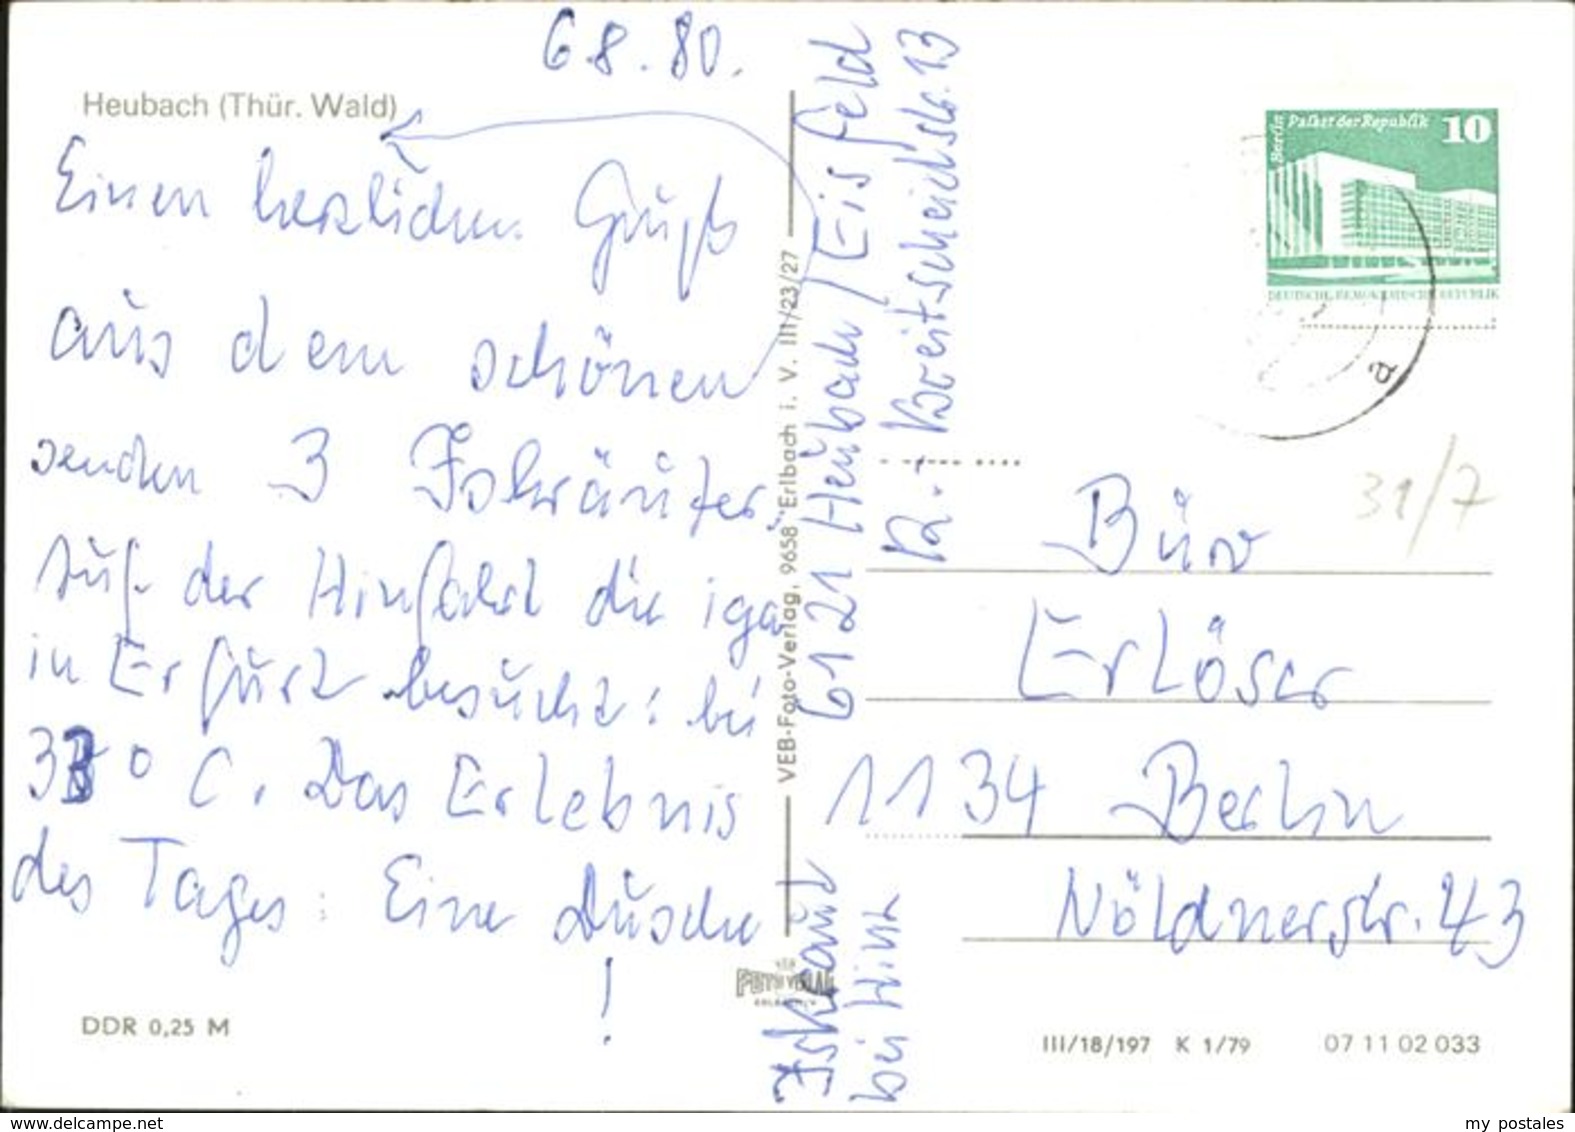 6.8.80.
Heubach (Thür. Wald)
Einen herzlichen Gruß
aus dem schönen
senden 3 Iskräuter.
Auf der Hinfahrt die iga
in Erfurt besucht: bei
33° C. Das Erlebnis
des Tages: Eine Dusche
!
DDR 0,25 M
VEB-Foto-Verlag, 9658 Erlbach i. V. III/23/27
VEB
FOTO VERLAG
ERLBACH
Iskraut 6121 Heubach / Eisfeld
bei Hinz R.-Breitscheidstr. 13
Berlin Palast der Republik 10
DEUTSCHE DEMOKRATISCHE REPUBLIK
a
31/7
Büro
Erlöser
1134 Berlin
Nöldnerstr. 43
III/18/197 K 1/79 07 11 02 033
www.delcampe.net
my postales